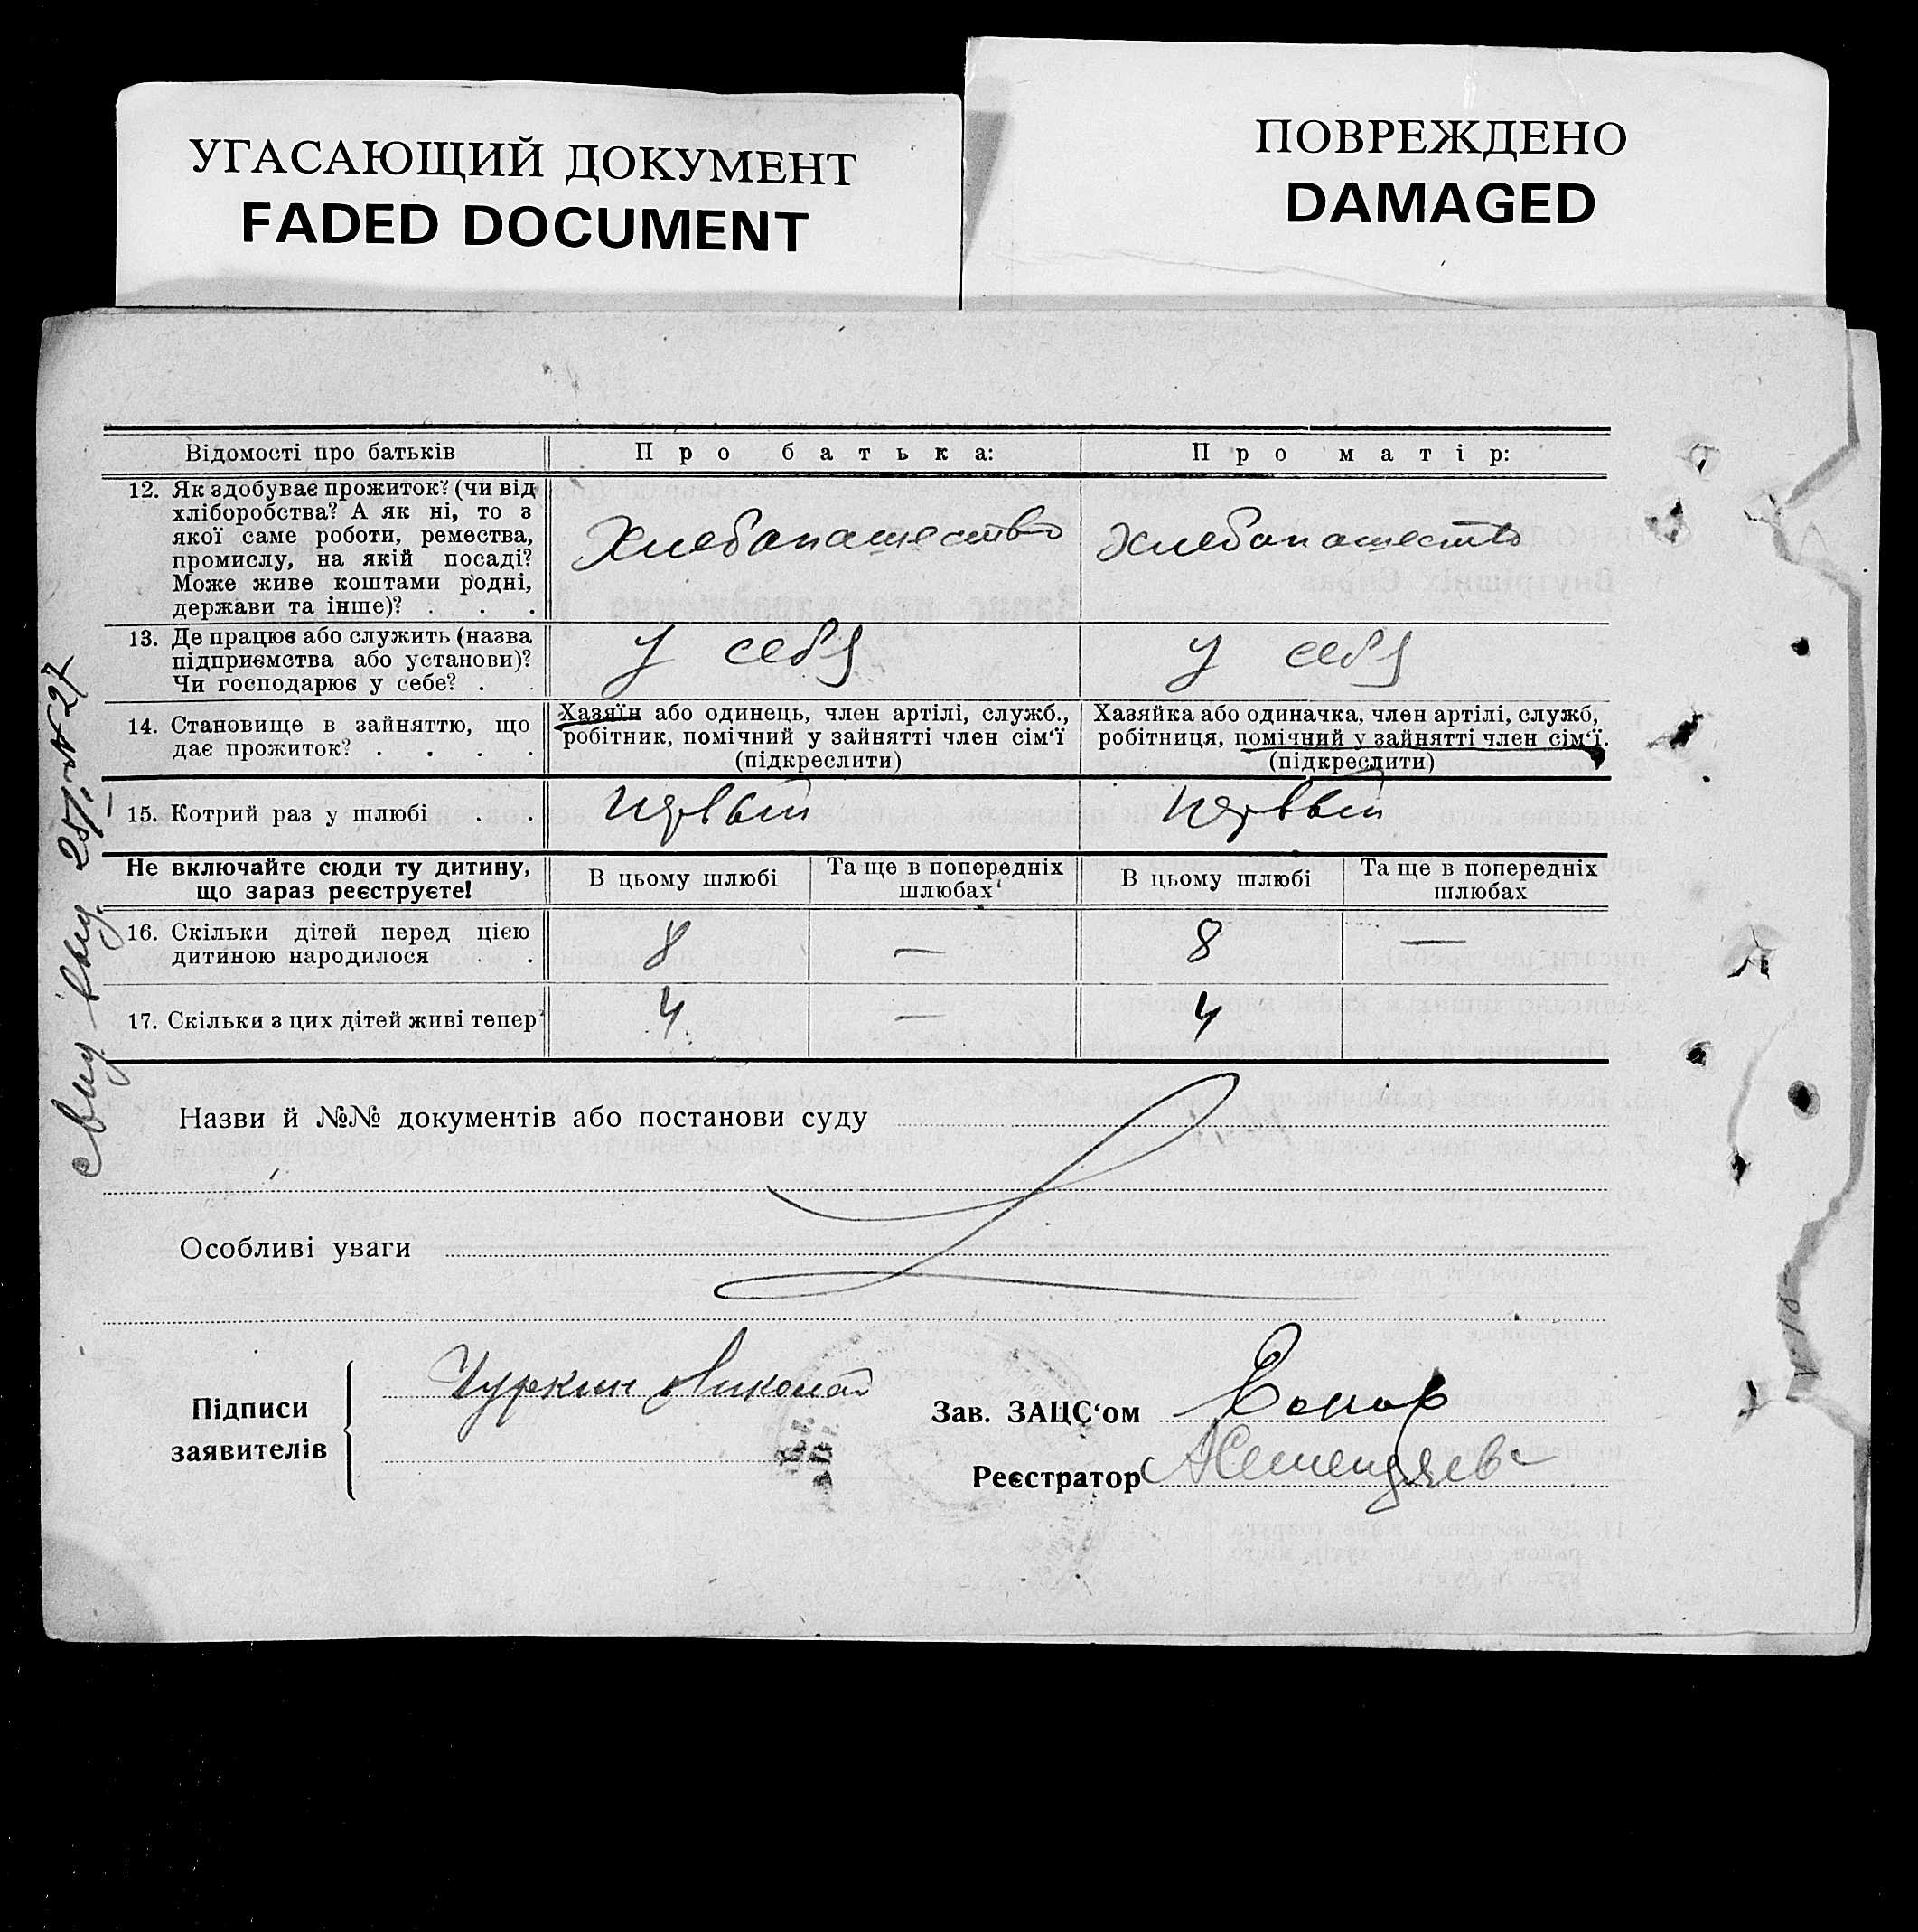 УГАСАЮЩИЙ ДОКУМЕНТ
FADED DOCUMENT
ПОВРЕЖДЕНО
DAMAGED
Відомості про батьків
Про батька:
Про матір:
12. Як здобуває прожиток? (чи від
хліборобства? А як ні, то з
якої саме роботи, ремества,
промислу, на якій посаді?
Може живе коштами родні,
держави та інше)? . . .
Хлебопашество
Хлебопашество
13. Де працює або служить (назва
підприємства або установи)?
Чи господарює у себе? . .
У себя
У себя
14. Становище в зайняттю, що
дає прожиток? . . . .
Хазяїн або одинець, член артілі, служб.,
робітник, помічний у зайнятті член сім‘ї
(підкреслити)
Хазяйка або одиначка, член артілі, служб,
робітниця, помічний у зайнятті член сім‘ї.
(підкреслити)
15. Котрий раз у шлюбі . .
первый
первый
Не включайте сюди ту дитину,
що зараз реєструєте!
В цьому шлюбі
Та ще в попередніх
шлюбах
В цьому шлюбі
Та ще в попередніх
шлюбах
16. Скільки дітей перед цією
дитиною народилося . .
8 — 8 —
17. Скільки з цих дітей живі тепер
4 — 4
Назви й №№ документів або постанови суду
Особливі уваги
Підписи
заявителів
Чуркин Николай
Зав. ЗАЦС‘ом
Реєстратор
25/I N 27